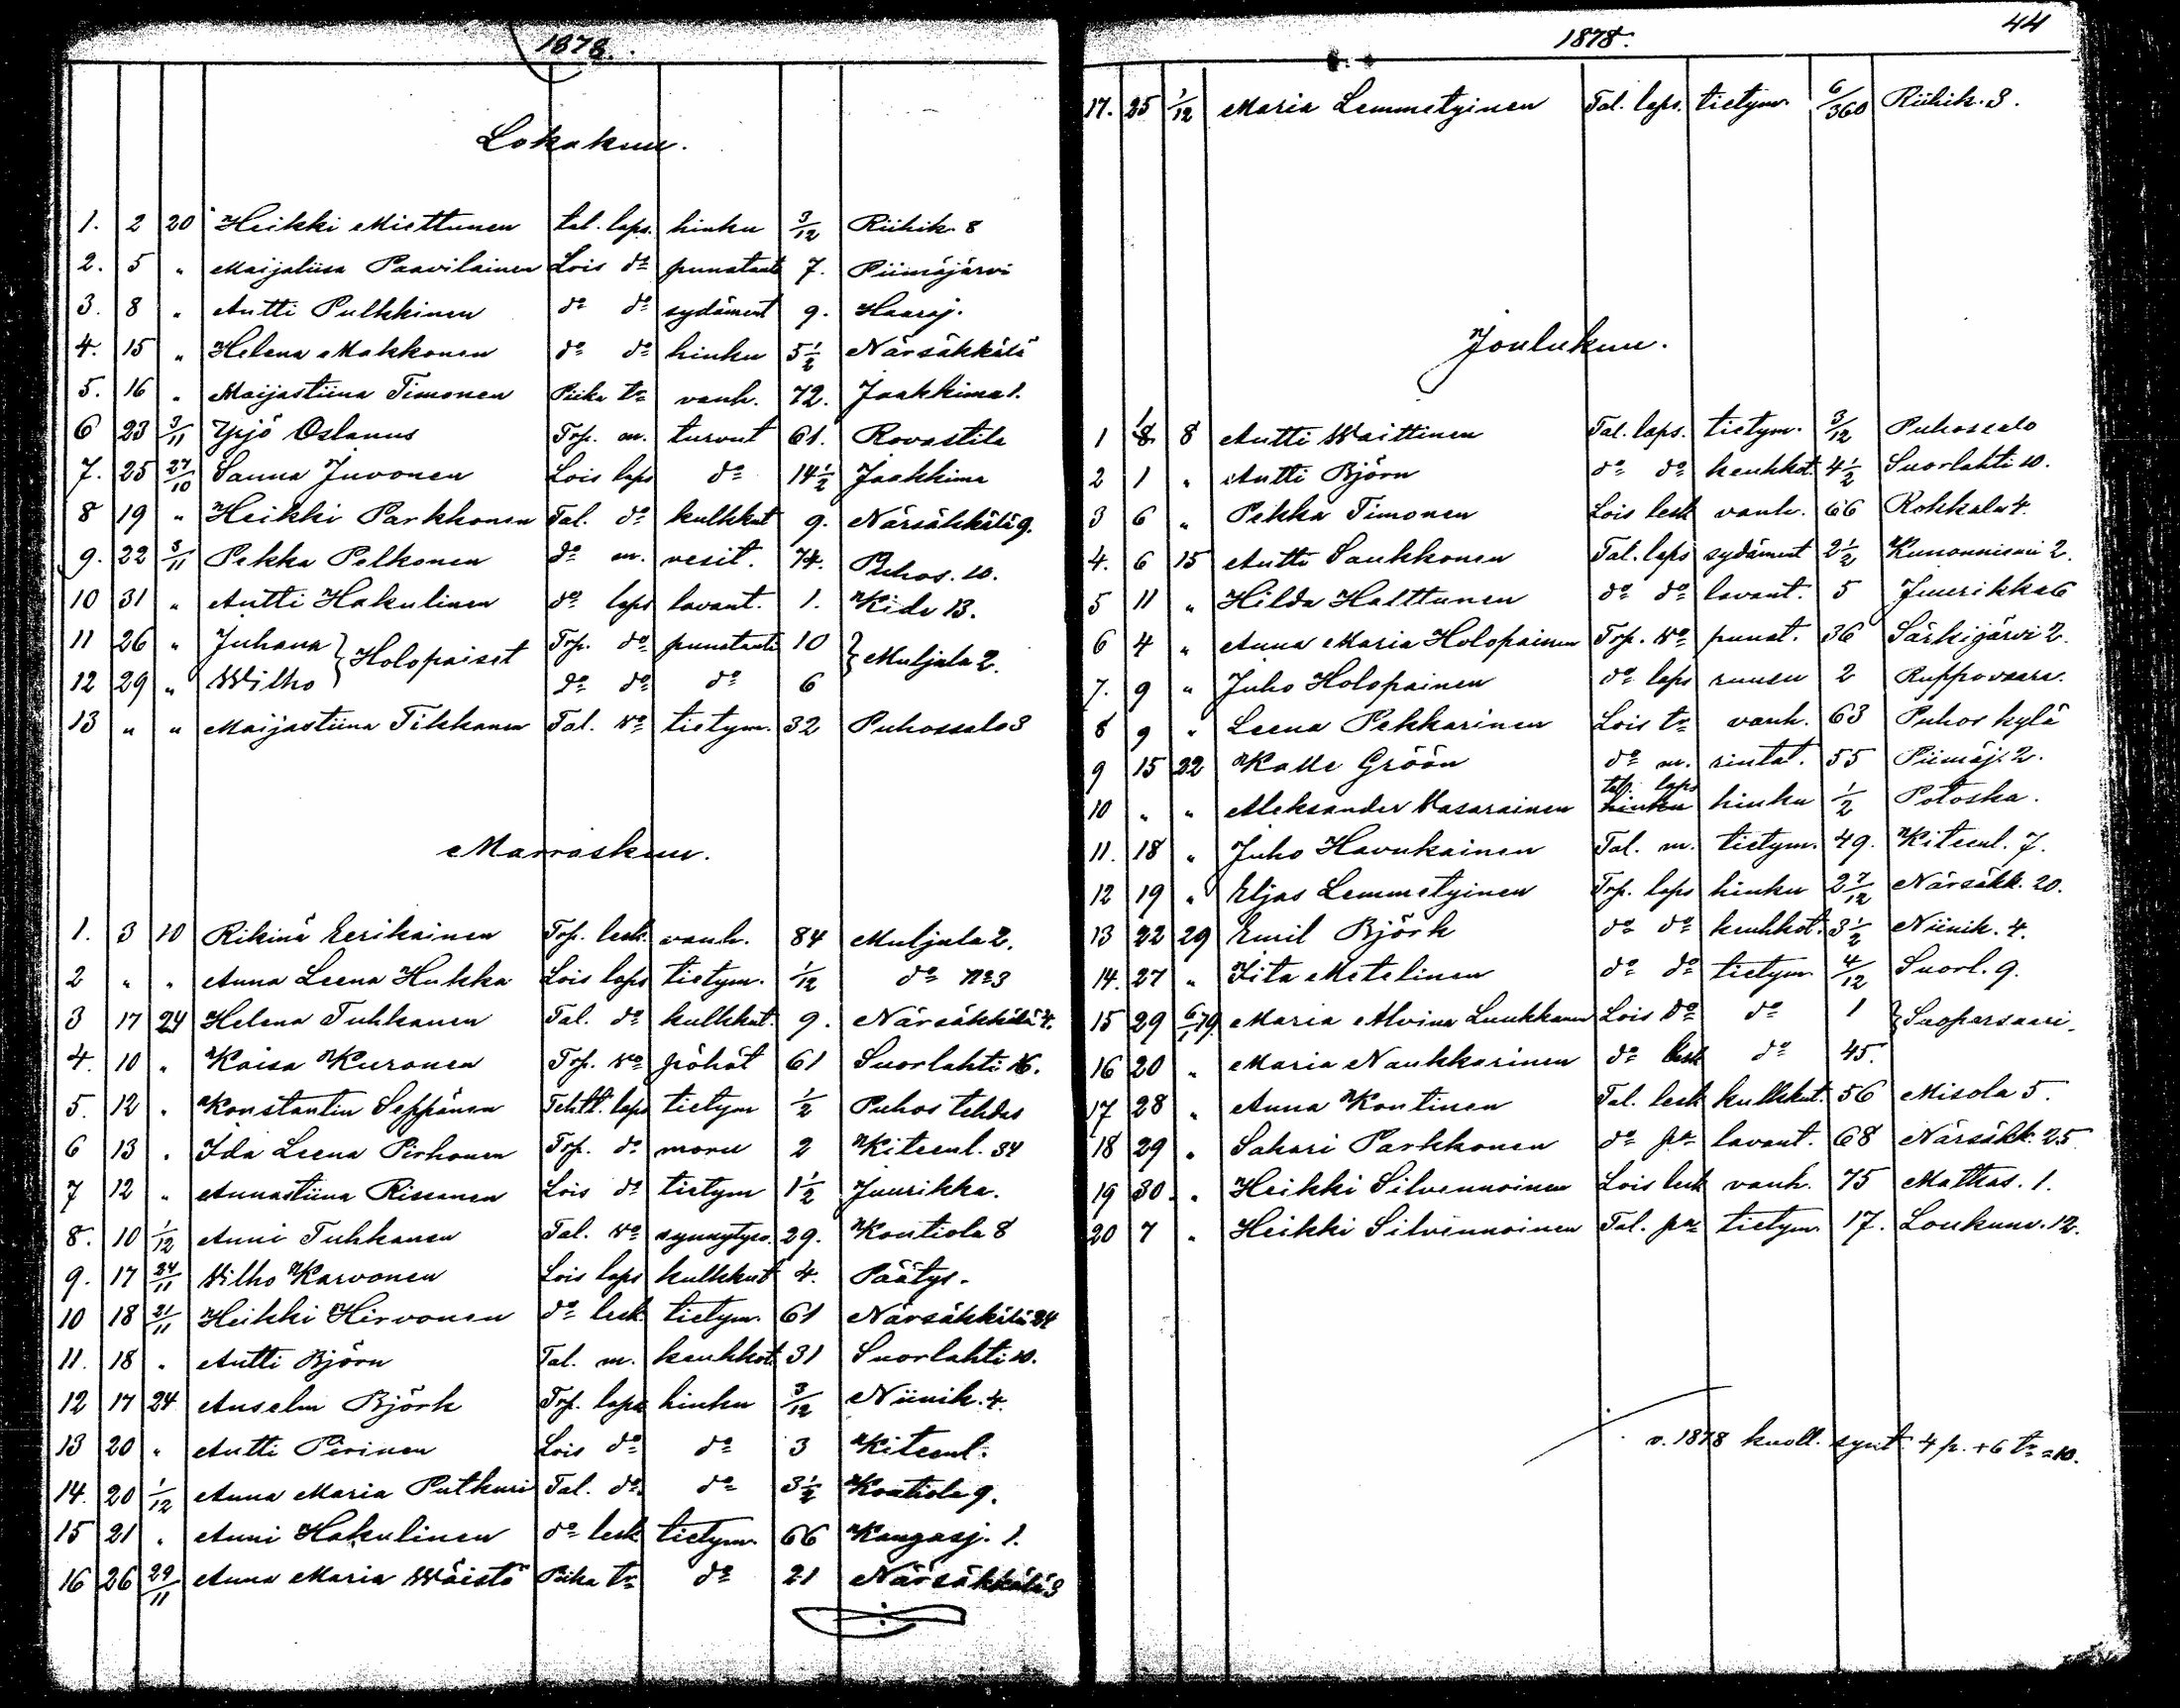 1878.
Lokakuu.
1. 2 20 Heikki Miettunen tal. laps. hinku 3/12 Riihik. 8
2. 5 " Maijaliisa Paavilainen Lois do punataut 7. Piimäjärvi
3. 8 " Antti Pulkkinen do do sydämmt 9. Haaraj.
4. 15 " Helena Makkonen do do hinku 5 1/2 Närsäkkälä
5. 16 " Maijastiina Timonen Piika tr vanh. 72. Jaakkima 1.
6 23 3/11 Yrjö Oslanus Top. m. turvut 61. Rovastila
7. 25 27/10 Sanna Juvonen Lois laps do 14 1/2 Jaakkima
8 19 " Heikki Parkkonen Tal. do kulkkut 9. Närsäkkälä 9.
9. 22 3/11 Pekka Pelkonen do m. vesit. 74. Puhos. 10.
10 31 " Antti Hakulinen do laps lavant. 1. Kide 13.
11 26 " Juhana } Holopaiset Top. do punataute 10 } Muljula 2.
12 29 " Wilho do do do 6
13 " " Maijastiina Tikkanen Tal. vo tietym. 32 Puhossalo 3
Marraskuu.
1. 3 10 Rikinä Eerikäinen Top. lesk. vanh. 84 Muljula 2.
2 " " Anna Leena Hukka Lois laps tietym. 1/12 do No 3
3 17 24 Helena Tuhkanen Tal. do kulkkut. 9. Närsäkkälä 4.
4. 10 " Kaisa Kuronen Top. vo pöhöt 61 Suorlahti 16.
5. 12 " Konstantin Seppänen Tehtt. laps tietym 1/2 Puhos tehdas
6 13 " Ida Leena Pirhonen Top. do monu 2 Kiteenl. 34
7 12 " Annastiina Rissanen Lois do tietym 1 1/2 Juurikka.
8. 10 1/12 Anni Tuhkanen Tal. vo synnytys. 29. Kontiola 8
9. 17 24/11 Wilho Karvonen Lois laps kulkkut 4. Päätys.
10 18 21/11 Heikki Hirvonen do lesk. tietym. 61 Närsäkkälä 24
11. 18 " Antti Björn Tal. m. keuhkot. 31 Suorlahti 10.
12 17 24 Anselm Björk Top. laps hinku 3/12 Niinik. 4.
13 20 " Antti Pirinen Lois do do 3 Kiteenl.
14. 20 1/12 Anna Maria Putkuri Tal. do do 3 1/2 Kontiola 9.
15 21 " Anni Hakulinen do lesk tietym. 66 Kangasj. 1.
16 26 29/11 Anna Maria Wäistö Piika tr do 21 Närsäkkälä 3
1878. 44
17. 25 1/12 Maria Lemmetyinen Tal. laps. tietym. 6/360 Riihik. 3.
Joulukuu.
1 1 8 Antti Waittinen Tal. laps. tietym. 3/12 Puhossalo
2 1 " Antti Björn do do keuhkot. 4 1/2 Suorlahti 10.
3 6 " Pekka Timonen Lois lesk vanh. 66 Rokkala 4.
4. 6 15 Antti Saukkonen Tal. laps sydämmt 2 1/2 Kunonniemi 2.
5 11 " Hilda Halttunen do do lavant. 5 Juurikka 6
6 4 " Anna Maria Holopainen Top. vo punat. 36 Särkijärvi 2.
7. 9 " Juho Holopainen do laps ruusu 2 Ruppovaara.
8 9 " Leena Pekkarinen Lois tr vanh. 63 Puhos kylä
9 15 22 Kalle Gröön do m. rintat. 55 Piimäj. 2.
10 " " Aleksander Wasarainen tal. laps hinku 1/2 Potoska.
11. 18 " Juho Havukainen Tal. m. tietym. 49. Kiteenl. 7.
12 19 " Eljas Lemmetyinen Top. laps hinku 2 7/12 Närsäkk. 20.
13 22 29 Emil Björk do do keuhkot. 3 1/2 Niinik. 4.
14. 27 " Iita Metelinen do do tietym 4/12 Suorl. 9.
15 29 6/1 79. Maria Alvina Luukkanen Lois do do 1 } Suoparsaari.
16 20 " Maria Naukkarinen do lesk do 45.
17 28 " Anna Kontinen Tal. lesk kulkkut. 56 Misola 5.
18 29 " Sakari Parkkonen do pr lavant. 68 Närsäkk. 25
19 30. " Heikki Silvennoinen Lois lesk vanh. 75 Matkas. 1.
20 7 " Heikki Silvennoinen Tal. pr tietym. 17. Loukunv. 12.
v. 1878 kuoll. synt. 4 p. + 6 tr = 10.